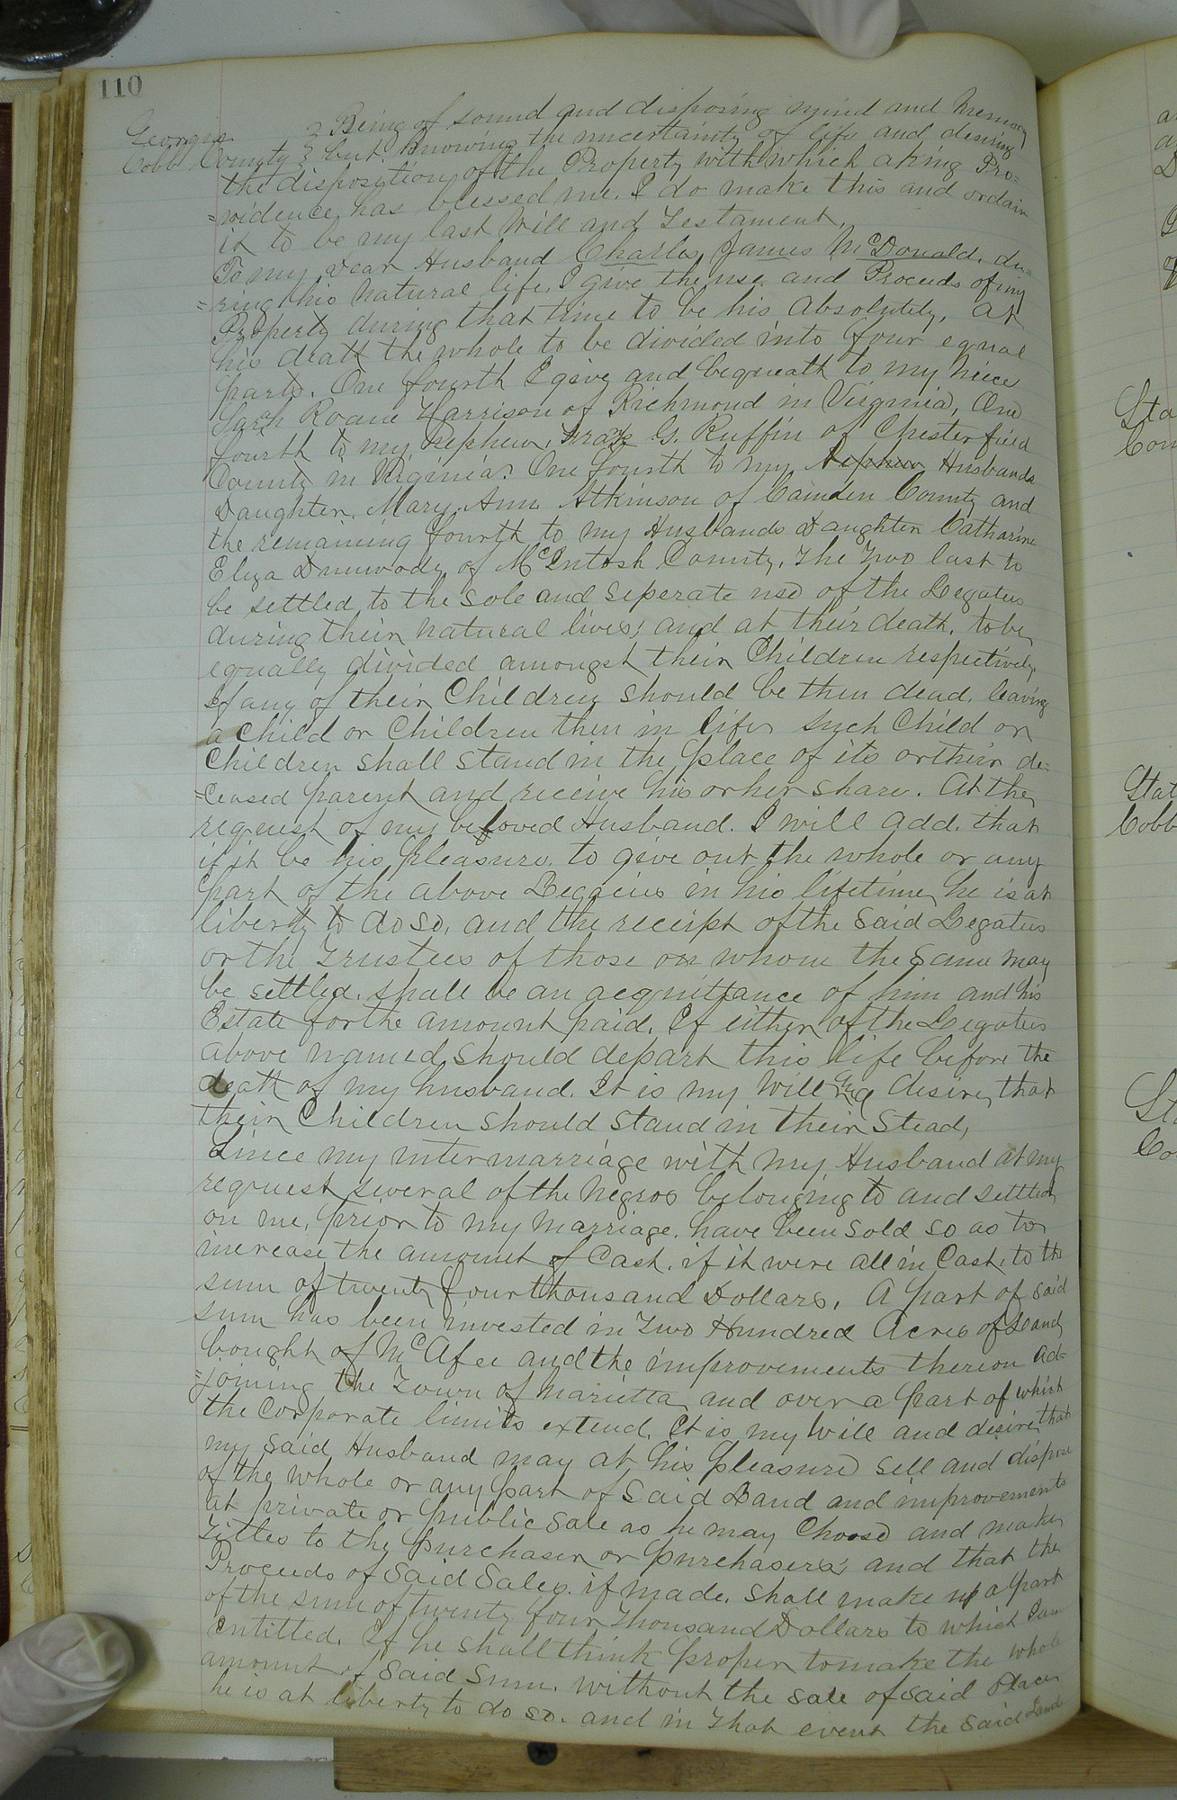 110
Georgia
Cobb County } Being of sound and disposing mind and Memory
but knowing the uncertainty of life and desiring
the disposition of the Property with which a King Pro=
=vidence has blessed me. I do make this and ordain
it to be my last Will and Testament.
To my dear Husband Charles James McDonald, du=
=ring his natural life, I give the use and Proceeds of my
Property during that time to be his absolutely, At
his death the whole to be divided into four equal
parts. One fourth I give and bequeath to my niece
Sarh Roane Harrison of Richmond in Virginia, One
fourth to my Nephew, G. Ruffin of Chesterfield
County in Virginia. One fourth to my Nephew Husbands
Daughter, Mary Ann Atkinson of Camden County and
the remaining fourth to my Husbands Daughter Catharine
Eliza Dunwody of McIntosh County. The Two last to
be settled to the sole and seperate use of the Legatees
during their natural lives; and at their death, to be
equally divided amongst their Children respectively.
If any of their Children should be then dead, leaving
a child or children then in life such Child or
Children shall stand in the place of its or their de=
=ceased parent and receive his or her share. At the
request of my beloved Husband. I will add, that
if it be his pleasure, to give out the whole or any
part of the above Legacies in his lifetime, he is at
liberty to do so, and the receipt of the said Legatees
or the Trustees of those on whom the same may
be settled. shall be an acquittance of him and his
Estate for the amount paid. If either of the Legatees
above named should depart this life before the
death of my husband. It is my Will and desire, that
their Children should stand in their Stead,
Since my intermarriage with my Husband at my
request several of the Negros belonging to and settled
on me, prior to my marriage. have been sold so as to
increase the amount of Cash, if it were all in Cash, to the
sum of twenty four thousand Dollars. A part of said
sum has been invested in Two Hundred Acres of Land
bought of McAfee and the improvements thereon ad=
=joining the Town of Marietta and over a part of which
the Corporate limits extend. It is my Will and desire that
my said Husband may at his pleasure sell and dispose
of the whole or any part of Said Land and improvements
at private or public sale as he may Choose and make
Titles to the purchaser or purchasers; and that the
Proceeds of said Sales. if made, shall make up a part
of the sum of twenty four Thousand Dollars to which I am
entitled. If he shall think proper to make the whole
amount of said sum. without the sale of said Place
he is at liberty to do so. and in that event the said Land
Sta
Stat
Cobb